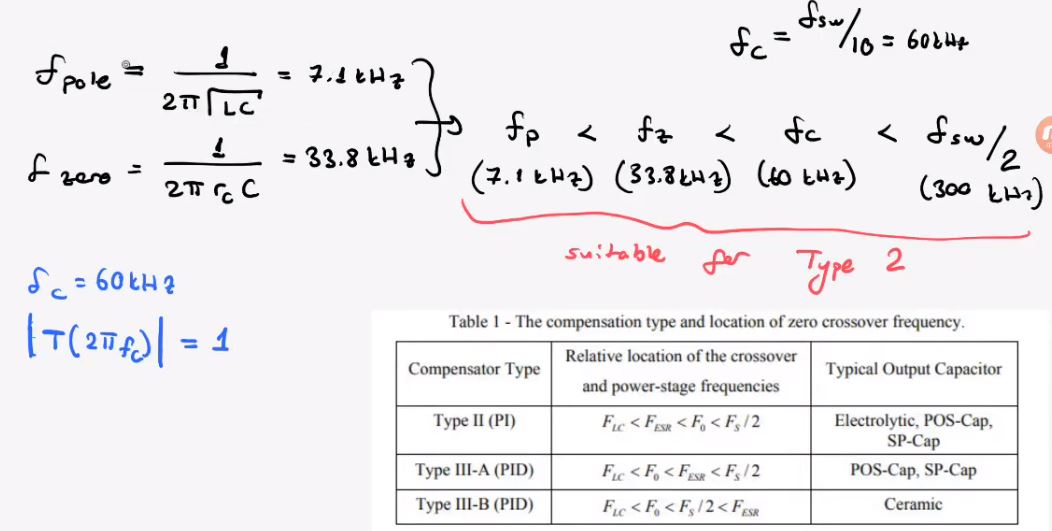 f_c = f_sw/10 = 60kHz
f_pole = 1/(2π√LC) = 7.1 kHz
f_zero = 1/(2π r_c C) = 33.8 kHz
f_p < f_z < f_c < f_sw/2
(7.1 kHz) (33.8kHz) (60 kHz) (300 kHz)
suitable for Type 2
f_c = 60kHz
|T(2πf_c)| = 1
Table 1 - The compensation type and location of zero crossover frequency.
Compensator Type | Relative location of the crossover and power-stage frequencies | Typical Output Capacitor
Type II (PI) | F_LC < F_ESR < F_0 < F_S/2 | Electrolytic, POS-Cap, SP-Cap
Type III-A (PID) | F_LC < F_0 < F_ESR < F_S/2 | POS-Cap, SP-Cap
Type III-B (PID) | F_LC < F_0 < F_S/2 < F_ESR | Ceramic